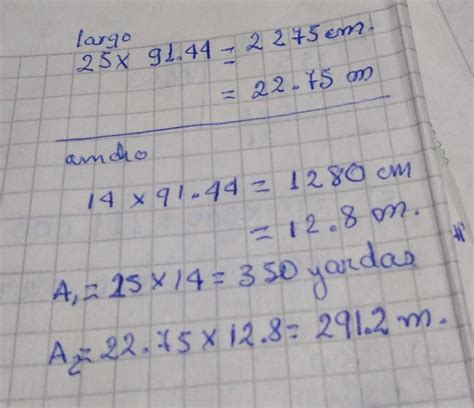 largo
25 x 91.44 = 2275 cm.
= 22.75 m
ancho
14 x 91.44 = 1280 cm
= 12.8 m.
A₁ = 25 x 14 = 350 yardas
A₂ = 22.75 x 12.8 = 291.2 m.